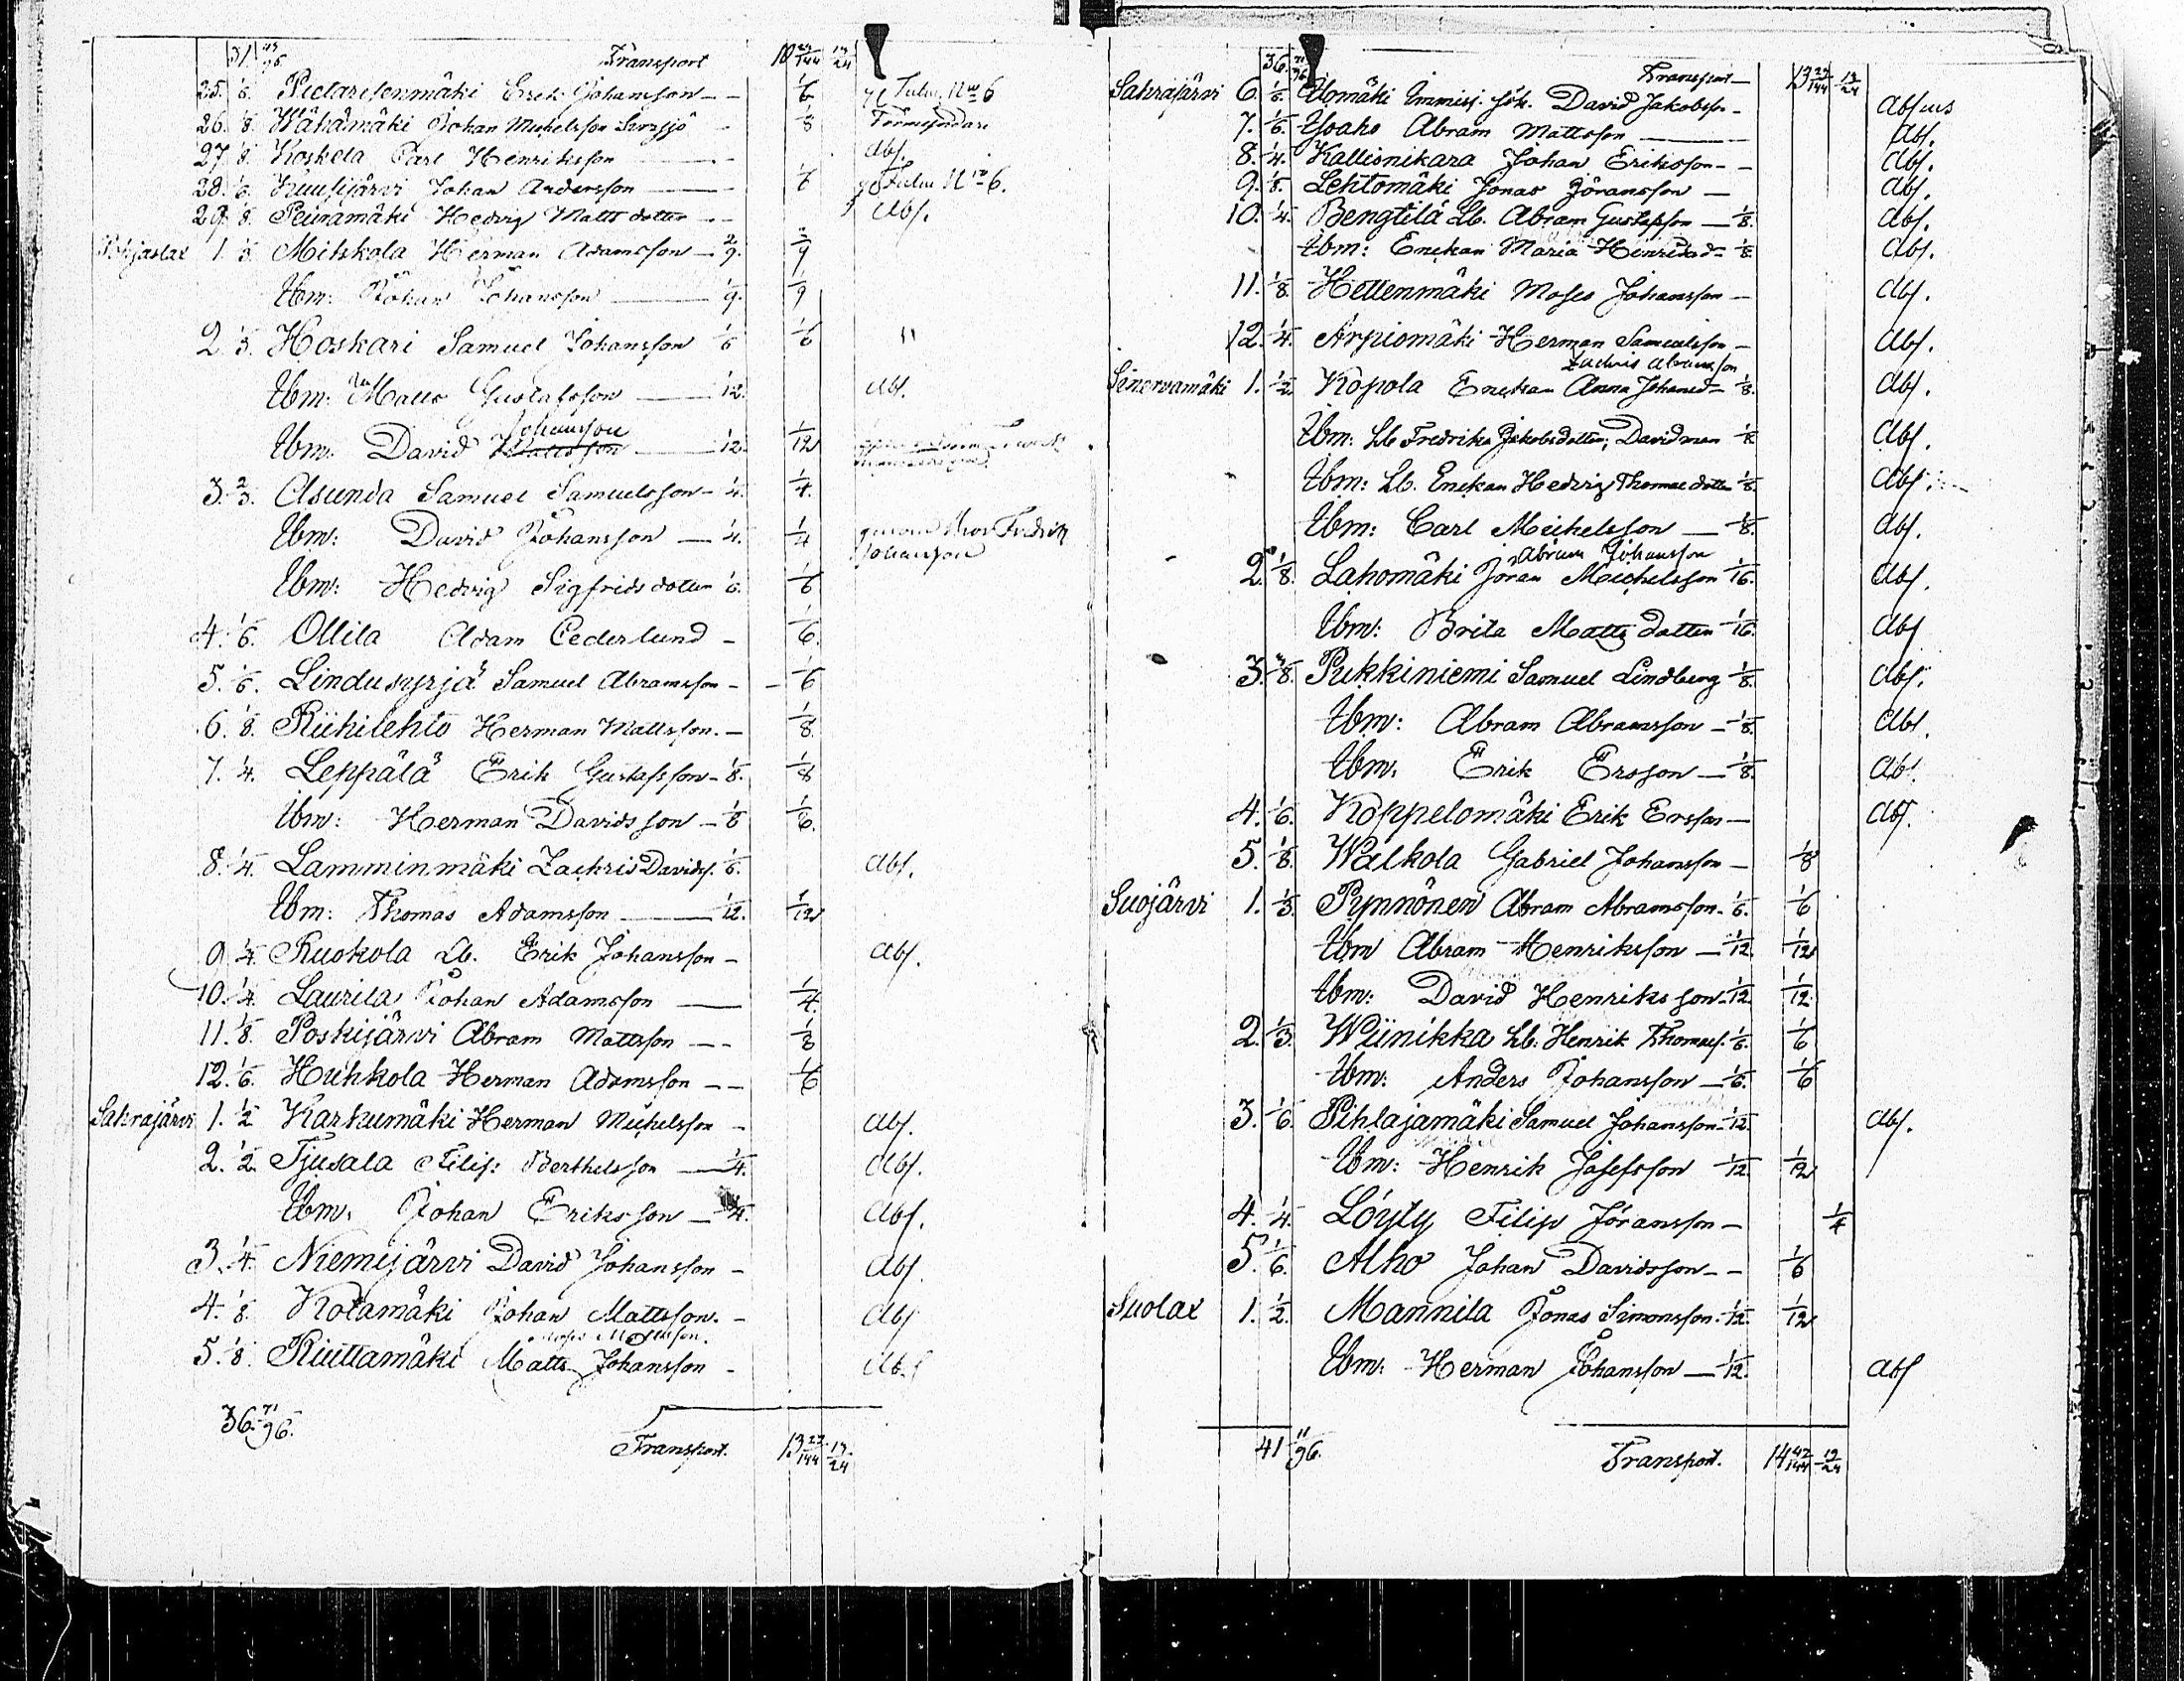 31. 43/96 Transport 10 23/144 13/24
25. 1/6. Pietarisenmäki Erik Johansson - - 1/6 Tulu N:o 6
26. 1/8. Wähämäki Johan Michelsson - 1/8
27. 1/8. Koskela Carl Henriksson - Abs.
28. 1/6. Kuusijärvi Johan Andersson - 1/6 Tulu N:o 6.
29. 1/8. Peuramäki Hedvig Mattsdotter - - Abs.
Pohjaslax 1. 1/3. Mitskola Herman Adamsson - 2/9. 2/9
Ibm: Johan Johansson - 1/9. 1/9
2. 1/3. Hoskari Samuel Johansson 1/6 1/6 "
Ibm: Matts Gustafsson - 1/12. Abs.
Johansson
Ibm: David Mattsson - 1/12. 1/12
3. 2/3. Asunda Samuel Samuelsson - 1/4. 1/4.
Ibm: David Johansson - 1/4. 1/4 genom Fredrik
Johansson
Ibm: Hedvig Sigfridsdotter 1/6. 1/6
4. 1/6. Ollila Adam Cederlund - 1/6.
5. 1/6. Lindusyrjä Samuel Abramsson - - 1/6
6. 1/8. Riihilehto Herman Mattsson. - 1/8.
7. 1/4. Leppälä Erik Gustafsson - 1/8. 1/8
Ibm: Herman Davidsson - 1/8 1/6.
8. 1/4. Lamminmäki Zachris Davids. 1/6. Abs.
Ibm: Thomas Adamsson - 1/12. 1/12
9 1/4. Ruokola Lb. Erik Johansson - Abs.
10. 1/4. Laurila Johan Adamsson - 1/4.
11. 1/8. Poskijärvi Abram Mattsson - - 1/8
12. 1/6. Huhkola Herman Adamsson - - 1/6
Sahrajärvi 1. 1/2 Karkumäki Herman Michelsson - Abs.
2. 1/2. Tjusala Filip: Berthelsson - 1/4. Abs.
Ibm: Johan Eriksson - 1/4. Abs.
3. 1/4. Niemijärvi David Johansson - Abs.
4. 1/8. Kotamäki Johan Mattsson. - Abs
Mattsson.
5. 1/8. Riuttamäki Matts Johansson - Abs
36. 71/96.
Transport. 13 23/144 13/24
36. 71/96 Transport - 13 23/144 13/24
Sahrajärvi 6. 1/6. Ulomäki David Jakobsson - Absens
7. 1/6. Ysaho Abram Mattsson - Abs.
8. 1/4. Kallionikara Johan Eriksson - - Abs.
9. 1/8. Lehtomäki Jonas Jöransson - Abs.
10. 1/4. Bengtilä Lb. Abram Gustafsson - 1/8. Abs.
Ibm: Enckan Maria Henriksd - 1/8. Abs.
11. 1/8. Hettenmäki Moses Johansson - Abs.
12. 1/4. Arpiomäki Herman Samuelsson - Abs.
Zachris Abramsson
Sinervamäki 1. 1/2. Kopola Enckan Anna Johansd - 1/8. Abs.
Ibm: Lb Fredrika Jakobsdotter, Davidman 1/8. Abs.
Ibm: Lb. Enckan Hedvig Thomasdotter 1/8. Abs.
Ibm: Carl Michelsson - 1/8. Abs.
Abram Johansson
2. 1/8. Lahomäki Jöran Michelsson 1/16. Abs.
Ibm: Brita Mattsdotter 1/16. Abs
3. 3/8. Pukkiniemi Samuel Lindberg 1/8. Abs.
Ibm: Abram Abramsson - 1/8. Abs.
Ibm: Erik Ersson - 1/8. Abs.
4. 1/6. Koppelomäki Erik Ersson - Abs.
5. 1/8. Walkola Gabriel Johansson - 1/8
Suojärvi 1. 1/3. Pynnönen Abram Abramsson. 1/6. 1/6
Ibm Abram Henriksson - 1/12. 1/12
Ibm: David Henriksson - 1/12. 1/12.
2. 1/3. Wiinikka Lb: Henrik Thomas. 1/6. 1/6
Ibm: Anders Johansson - 1/6. 1/6
3. 1/6. Pihlajamäki Samuel Johansson - 1/12. Abs.
Ibm: Henrik Josefsson 1/12 1/12
4. 1/4. Löyty Filip Jöransson - 1/4
5. 1/6. Alho Johan Davidsson - - 1/6
Suolax 1. 1/2. Mannila Jonas Simonsson. 1/12. 1/12
Ibm: Herman Johansson - 1/12. Abs
41 11/96.
Transport. 14 42/144 19/24